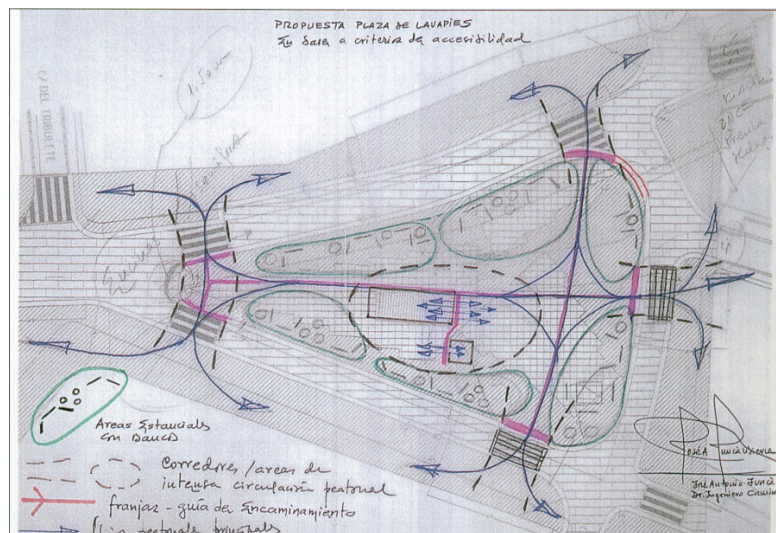 PROPUESTA PLAZA DE LAVAPIES
En base a criterios de accesibilidad
1.50
C/ DEL TRIBULETE
Prensa
Encina
Areas Estanciales
con Bancos
corredores/areas de
intensa circulación peatonal
franjas-guía de Encaminamiento
peatonales principales
José Antonio Juncà
Dr. Ingeniero Caminos